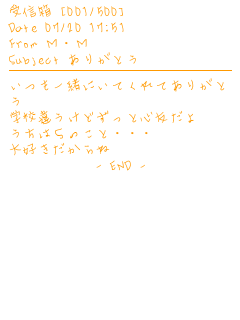 受信箱 [001/500]
Date 07/20 17:51
From M・M
Subject ありがとう
いつも一緒にいてくれてありがと
う
学校違うけどずっと心友だよ
うちはらのこと・・・
大好きだからね
- END -